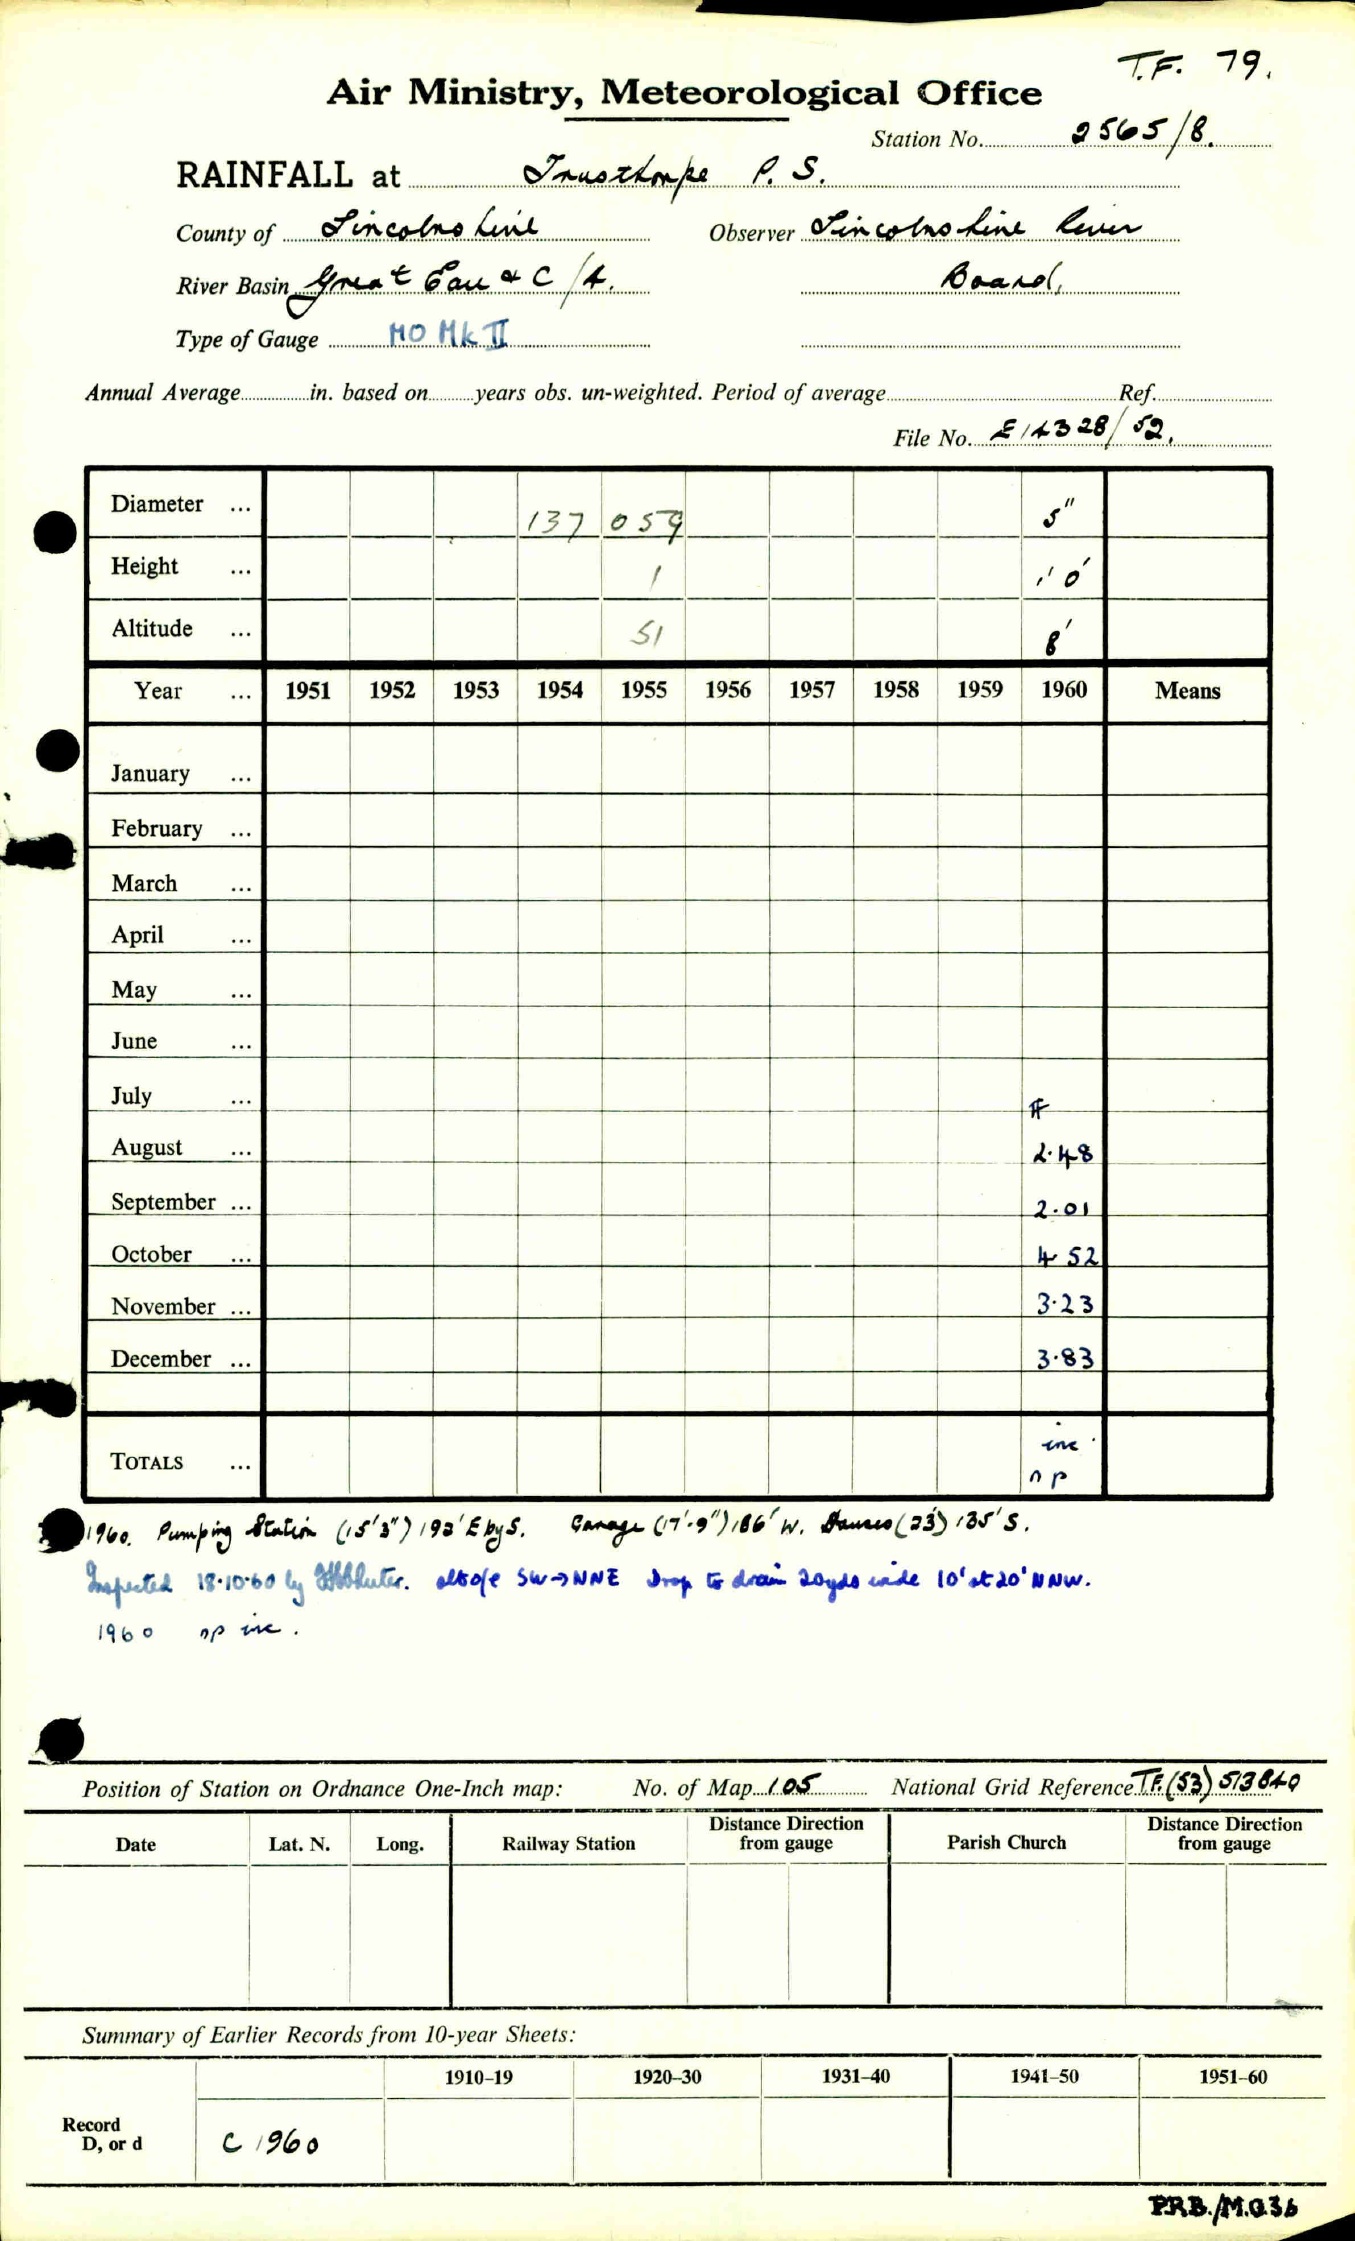 T.F. 79.
Air Ministry, Meteorological Office
Station No. 2565/8.
RAINFALL at Trusthorpe P. S.
County of Lincolnshire Observer Lincolnshire River
River Basin Great Eau & C/A. Board.
Type of Gauge MO Mk II
Annual Average in. based on years obs. un-weighted. Period of average Ref.
File No. E14328/52.
Diameter ... 137 059 5"
Height ... 1 1' 0"
Altitude ... 51 8'
Year ... 1951 1952 1953 1954 1955 1956 1957 1958 1959 1960 Means
January ...
February ...
March ...
April ...
May ...
June ...
July ...
August ... 2.48
September ... 2.01
October ... 4 52
November ... 3.23
December ... 3.83
TOTALS ... inc
np
1960. Pumping Station (15'3") 192' E by S. Garage (17'.9") 186' W. Houses (23') 135' S.
Inspected 18.10.60 by SW→NNE Drop to drain 20yds wide 10' at 20' NNW.
1960 np inc.
Position of Station on Ordnance One-Inch map: No. of Map 105 National Grid Reference T.F. (53) 513840
Date Lat. N. Long. Railway Station Distance Direction from gauge Parish Church Distance Direction from gauge
Summary of Earlier Records from 10-year Sheets:
1910–19 1920–30 1931–40 1941–50 1951–60
Record
D, or d C 1960
P.R.B./M.O.36